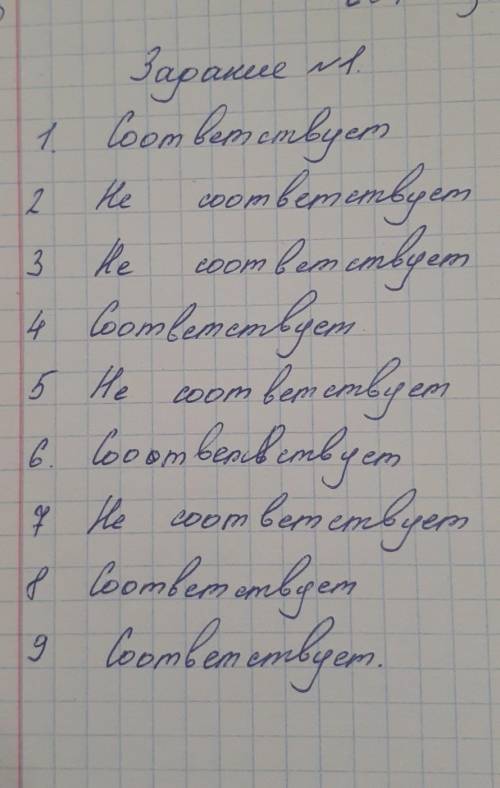 Задание №1.
1. Соответствует
2 Не соответствует
3 Не соответствует
4 Соответствует
5 Не соответствует
6.
7 Не соответствует
8 Соответствует
9 Соответствует.